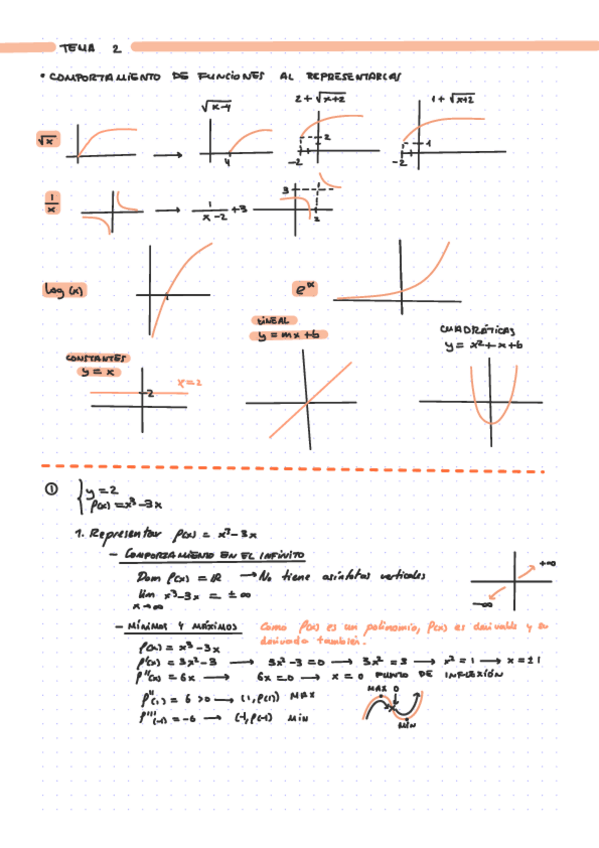 TEMA 2
• COMPORTAMIENTO DE FUNCIONES AL REPRESENTARLAS
√x
√x-4
4
2+√x+2
2
-2
1+√x+2
1
-2
1/x
1/x-2 +3
3
2
log(x)
1
eˣ
CONSTANTES
y = x
x=2
2
LINEAL
y = mx+b
CUADRÁTICAS
y = x²+x+b
① { y=2
P(x) = x³-3x
1. Representar P(x) = x³-3x
- COMPORTAMIENTO EN EL INFINITO
Dom P(x) = ℝ → No tiene asíntotas verticales
lim x³-3x = ±∞
x→∞
+∞
-∞
- MÍNIMOS Y MÁXIMOS
Como P(x) es un polinomio, P(x) es derivable y su
derivada también.
P(x) = x³-3x
P'(x) = 3x²-3 → 3x²-3=0 → 3x²=3 → x²=1 → x=±1
P''(x) = 6x → 6x=0 → x=0 PUNTO DE INFLEXIÓN
P''(1) = 6 >0 → (1, P(1)) MAX
P'''(-1) = -6 → (-1, P(-1)) MIN
MAX 0
MIN